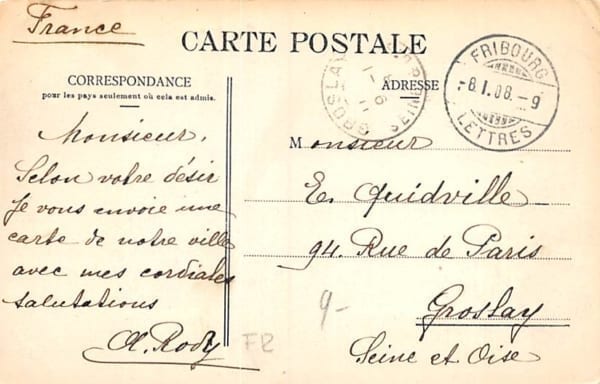 France
CARTE POSTALE
CORRESPONDANCE
pour les pays seulement où cela est admis.
Monsieur,
Selon votre désir
Je vous envoie une
carte de notre ville
avec mes cordiales
salutations
ADRESSE
FRIBOURG
-8.I.08.-9
LETTRES
GROSLAY
Monsieur
E. Quidville
94. Rue de Paris
Groslay
Seine et Oise
9-
FR